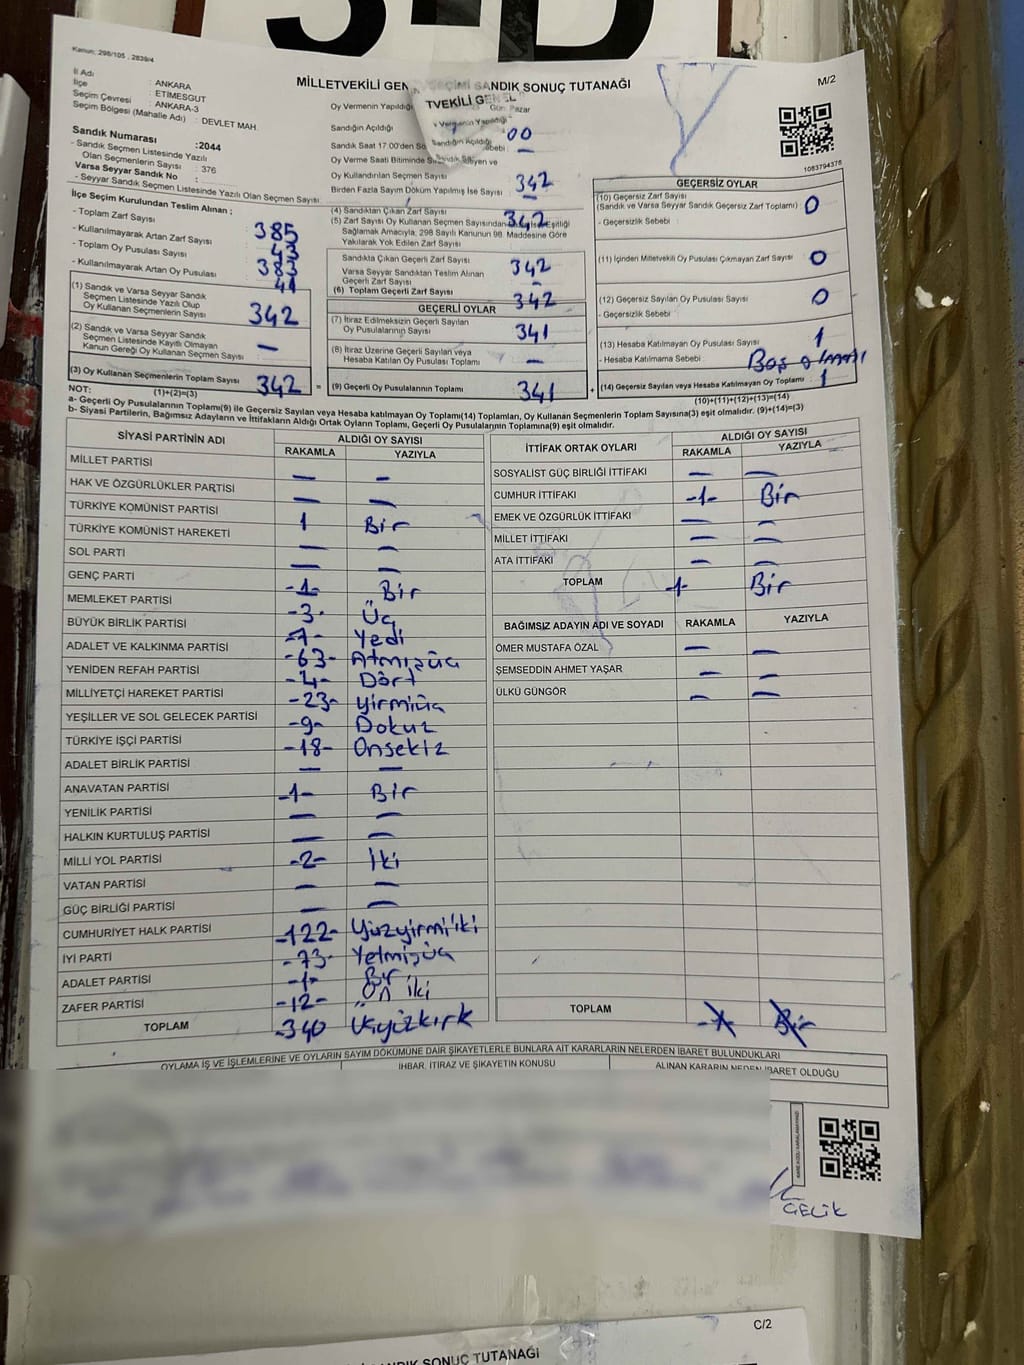 3-D
Kanun: 298/105 , 2839/4
MİLLETVEKİLİ GEN SEÇİMİ SANDIK SONUÇ TUTANAĞI
M/2
TVEKİLİ GENEL
İl Adı : ANKARA
İlçe : ETİMESGUT
Seçim Çevresi : ANKARA-3
Seçim Bölgesi (Mahalle Adı) : DEVLET MAH.
Sandık Numarası :2044
- Sandık Seçmen Listesinde Yazılı
Olan Seçmenlerin Sayısı : 376
Varsa Seyyar Sandık No :
- Seyyar Sandık Seçmen Listesinde Yazılı Olan Seçmen Sayısı
İlçe Seçim Kurulundan Teslim Alınan ;
- Toplam Zarf Sayısı 385
- Kullanılmayarak Artan Zarf Sayısı 43
- Toplam Oy Pusulası Sayısı 383
- Kullanılmayarak Artan Oy Pusulası 41
(1) Sandık ve Varsa Seyyar Sandık
Seçmen Listesinde Yazılı Olup
Oy Kullanan Seçmenlerin Sayısı 342
(2) Sandık ve Varsa Seyyar Sandık
Seçmen Listesinde Kayıtlı Olmayan
Kanun Gereği Oy Kullanan Seçmen Sayısı : —
(3) Oy Kullanan Seçmenlerin Toplam Sayısı 342
(1)+(2)=(3)
Oy Vermenin Yapıldığı
Gün Pazar
Vermenin Yapıldığı
Sandığın Açıldığı
Sandığın Açıldığı
00
Sandık Saat 17:00'den
Sebebi : —
Oy Verme Saati Bitiminde
Oy Kullandırılan Seçmen Sayısı 342
Birden Fazla Sayım Döküm Yapılmış İse Sayısı —
(4) Sandıktan Çıkan Zarf Sayısı 342
(5) Zarf Sayısı Oy Kullanan Seçmen Sayısından Eşitliği
Sağlamak Amacıyla, 298 Sayılı Kanunun 98. Maddesine Göre
Yakılarak Yok Edilen Zarf Sayısı
Sandıkta Çıkan Geçerli Zarf Sayısı 342
Varsa Seyyar Sandıktan Teslim Alınan
Geçerli Zarf Sayısı —
(6) Toplam Geçerli Zarf Sayısı 342
GEÇERLİ OYLAR
(7) İtiraz Edilmeksizin Geçerli Sayılan
Oy Pusulalarının Sayısı 341
(8) İtiraz Üzerine Geçerli Sayılan veya
Hesaba Katılan Oy Pusulası Toplamı —
= (9) Geçerli Oy Pusulalarının Toplamı 341 +
1083794376
GEÇERSİZ OYLAR
(10) Geçersiz Zarf Sayısı
(Sandık ve Varsa Seyyar Sandık Geçersiz Zarf Toplamı) 0
- Geçersizlik Sebebi :
(11) İçinden Milletvekili Oy Pusulası Çıkmayan Zarf Sayısı 0
(12) Geçersiz Sayılan Oy Pusulası Sayısı 0
- Geçersizlik Sebebi :
(13) Hesaba Katılmayan Oy Pusulası Sayısı 1
- Hesaba Katılmama Sebebi : Boş olması
(14) Geçersiz Sayılan veya Hesaba Katılmayan Oy Toplamı 1
(10)+(11)+(12)+(13)=(14)
NOT:
a- Geçerli Oy Pusulalarının Toplamı(9) ile Geçersiz Sayılan veya Hesaba katılmayan Oy Toplamı(14) Toplamları, Oy Kullanan Seçmenlerin Toplam Sayısına(3) eşit olmalıdır. (9)+(14)=(3)
b- Siyasi Partilerin, Bağımsız Adayların ve İttifakların Aldığı Ortak Oyların Toplamı, Geçerli Oy Pusulalarının Toplamına(9) eşit olmalıdır.
SİYASİ PARTİNİN ADI ALDIĞI OY SAYISI
RAKAMLA YAZIYLA
MİLLET PARTİSİ — —
HAK VE ÖZGÜRLÜKLER PARTİSİ — —
TÜRKİYE KOMÜNİST PARTİSİ 1 Bir
TÜRKİYE KOMÜNİST HAREKETİ — —
SOL PARTİ — —
GENÇ PARTİ -1- Bir
MEMLEKET PARTİSİ -3- Üç
BÜYÜK BİRLİK PARTİSİ -7- Yedi
ADALET VE KALKINMA PARTİSİ -63- Atmışüç
YENİDEN REFAH PARTİSİ -4- Dört
MİLLİYETÇİ HAREKET PARTİSİ -23- Yirmiüç
YEŞİLLER VE SOL GELECEK PARTİSİ -9- Dokuz
TÜRKİYE İŞÇİ PARTİSİ -18- Onsekiz
ADALET BİRLİK PARTİSİ — —
ANAVATAN PARTİSİ -1- Bir
YENİLİK PARTİSİ — —
HALKIN KURTULUŞ PARTİSİ — —
MİLLİ YOL PARTİSİ -2- İki
VATAN PARTİSİ — —
GÜÇ BİRLİĞİ PARTİSİ — —
CUMHURİYET HALK PARTİSİ -122- Yüzyirmi iki
İYİ PARTİ -73- Yetmişüç
ADALET PARTİSİ -1- Bir
ZAFER PARTİSİ -12- On iki
TOPLAM -340 Üçyüzkırk
İTTİFAK ORTAK OYLARI ALDIĞI OY SAYISI
RAKAMLA YAZIYLA
SOSYALİST GÜÇ BİRLİĞİ İTTİFAKI — —
CUMHUR İTTİFAKI -1- Bir
EMEK VE ÖZGÜRLÜK İTTİFAKI — —
MİLLET İTTİFAKI — —
ATA İTTİFAKI — —
TOPLAM -1- Bir
BAĞIMSIZ ADAYIN ADI VE SOYADI RAKAMLA YAZIYLA
ÖMER MUSTAFA ÖZAL — —
ŞEMSEDDİN AHMET YAŞAR — —
ÜLKÜ GÜNGÖR — —
TOPLAM -1- Bir
OYLAMA İŞ VE İŞLEMLERİNE VE OYLARIN SAYIM DÖKÜMÜNE DAİR ŞİKAYETLERLE BUNLARA AİT KARARLARIN NELERDEN İBARET BULUNDUKLARI
İHBAR, İTİRAZ VE ŞİKAYETİN KONUSU
ALINAN KARARIN NEDEN İBARET OLDUĞU
ÇELİK
C/2
SANDIK SONUÇ TUTANAĞI